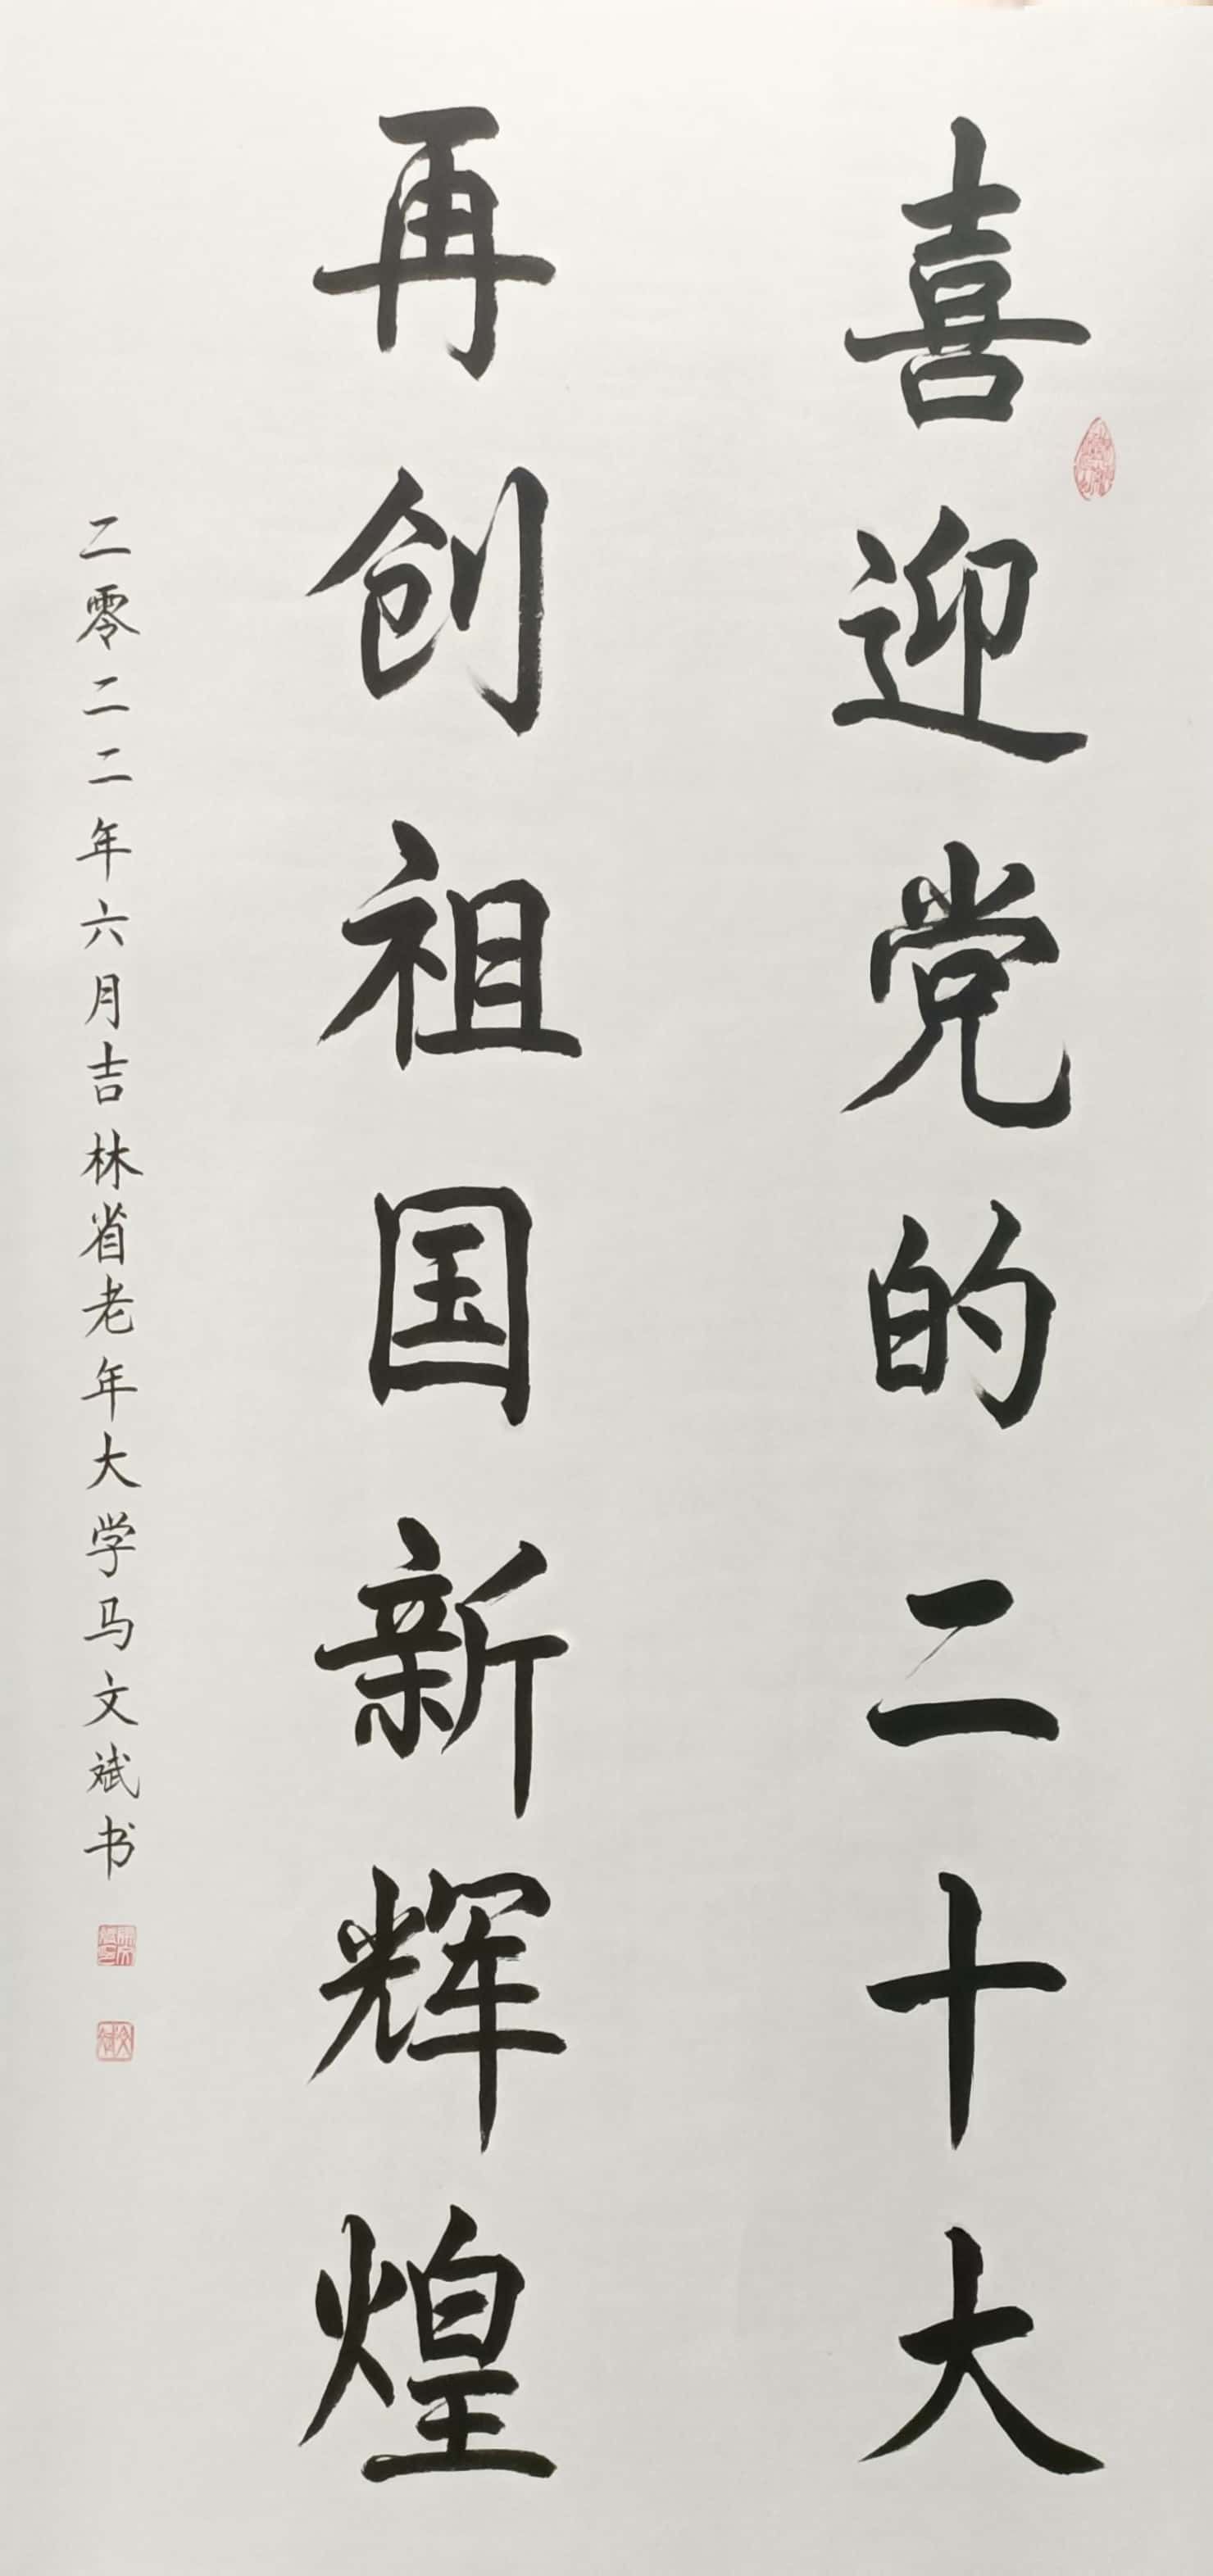 喜迎党的二十大
再创祖国新辉煌
二零二二年六月吉林省老年大学马文斌书